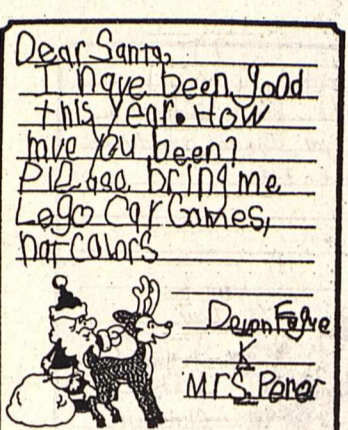 Dear Santa,
I have been good
this year. How
mve you been?
Please bring me
Lego Car Games,
nar colors
Devon
K
Mrs.